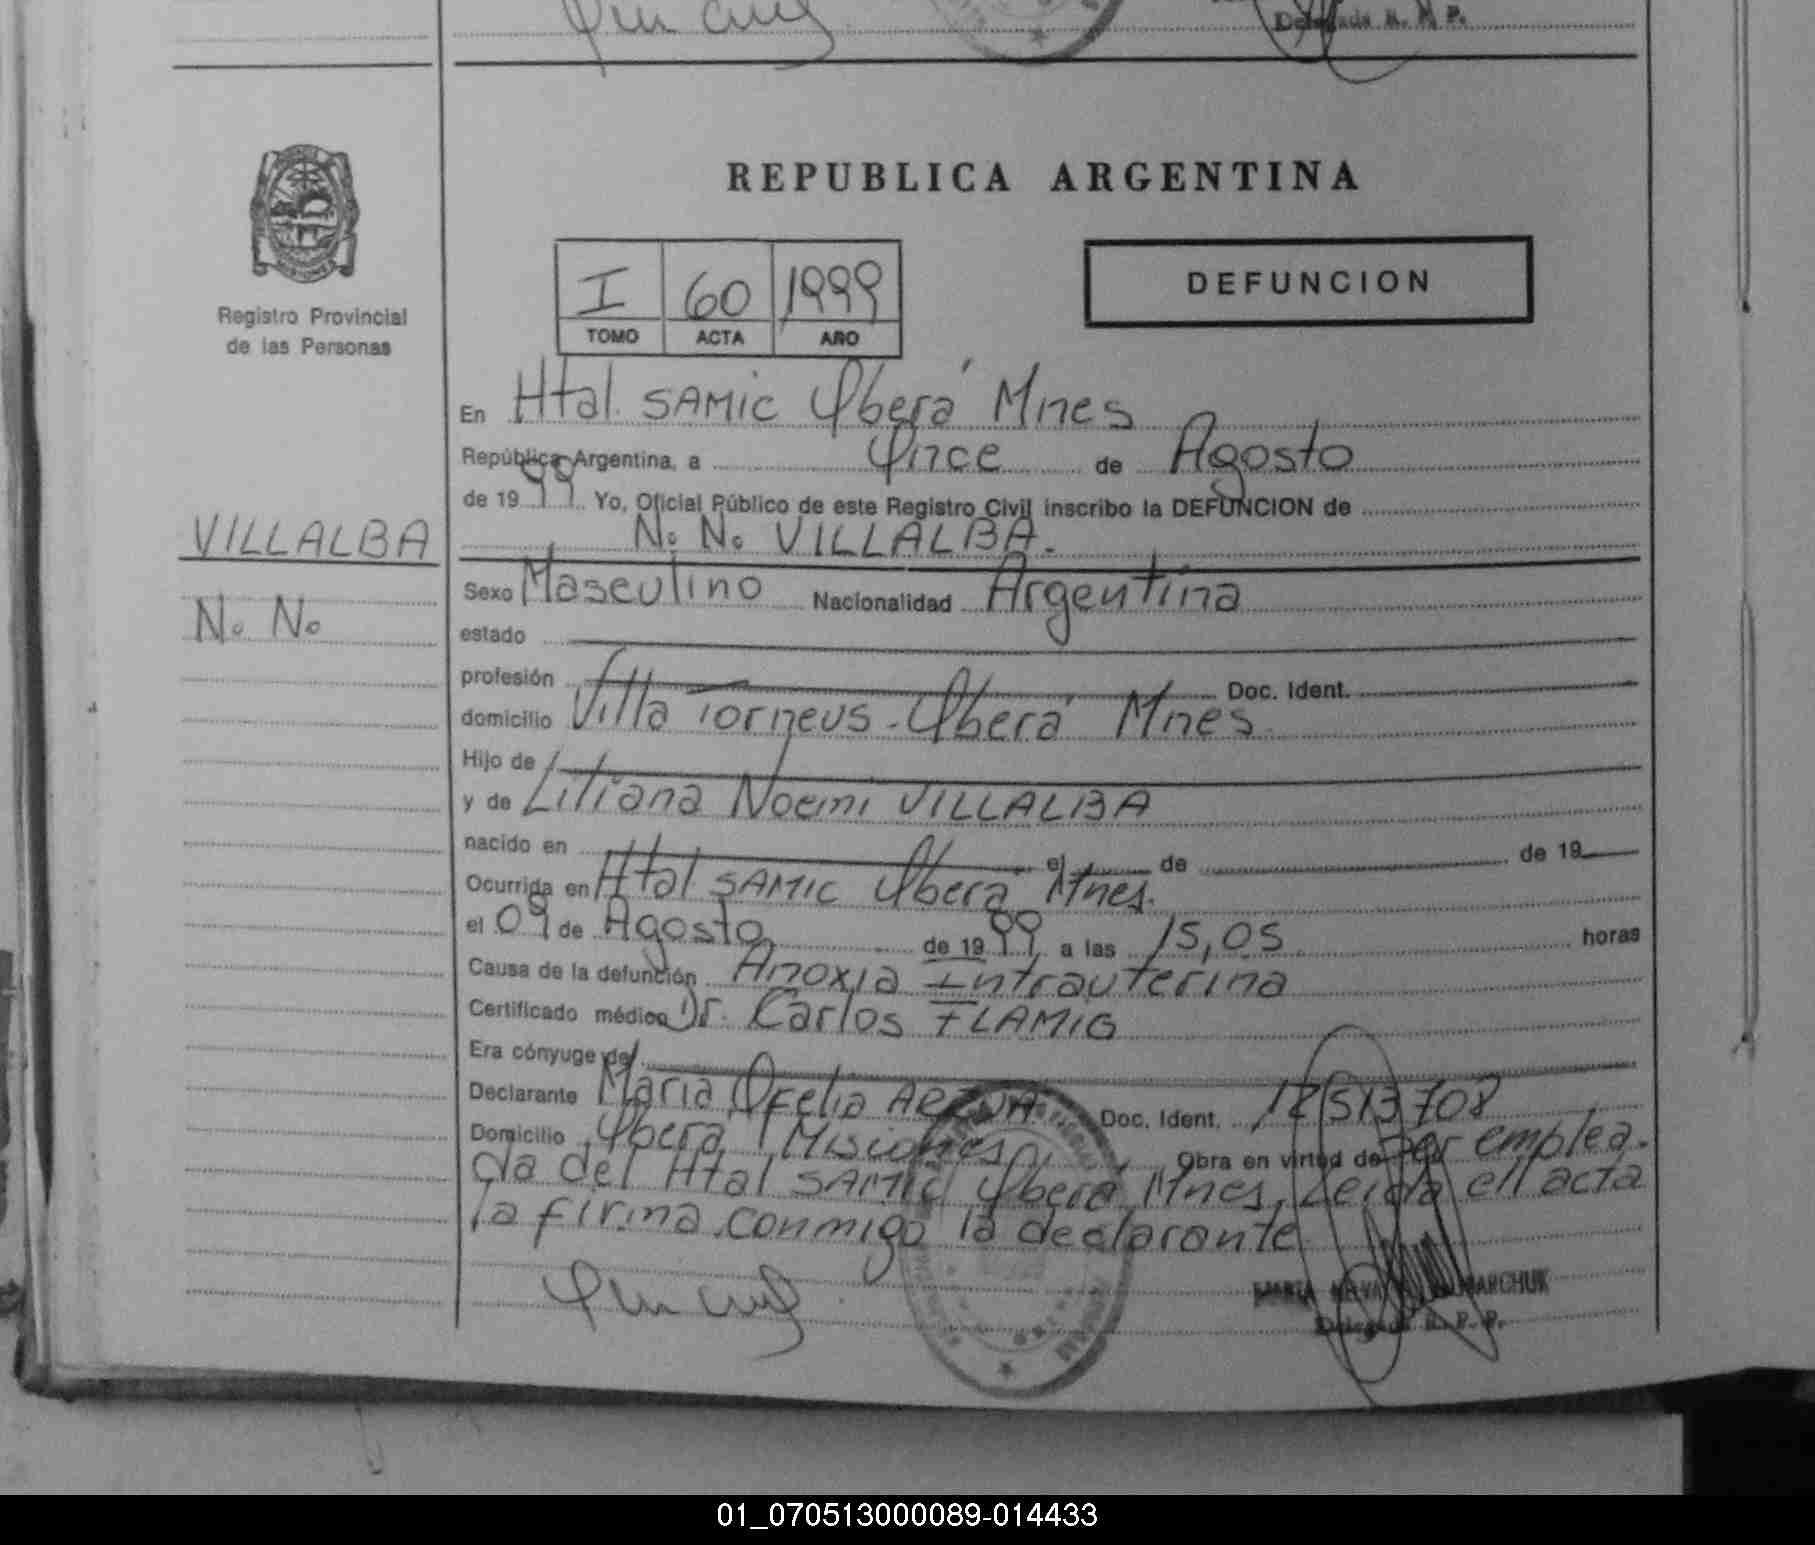 Delegada R. P. P.
REPUBLICA ARGENTINA
I 60 1999
TOMO ACTA AÑO
DEFUNCION
Registro Provincial
de las Personas
En Htal. SAMIC Oberá Mnes
República Argentina, a Once de Agosto
de 1999. Yo, Oficial Público de este Registro Civil inscribo la DEFUNCION de
N. N. VILLALBA.
VILLALBA
N. No
Sexo Masculino Nacionalidad Argentina
estado
profesión Doc. Ident.
domicilio Villa Torneus - Oberá Mnes.
Hijo de
y de Liliana Noemi VILLALBA
nacido en el de de 19
Ocurrida en Htal SAMIC Oberá Mnes.
el 09 de Agosto de 1999 a las 15,05 horas
Causa de la defunción Anoxia Intrauterina
Certificado médico Dr. Carlos FLAMIG
Era cónyuge de
Declarante Maria Ofelia Doc. Ident. 12513708
Domicilio Oberá, Misiones Obra en virtud de ser emplea-
da del Htal SAMIC Oberá Mnes, Leida el acta
la firma conmigo la declarante
Delegada R. P. P.
01_070513000089-014433